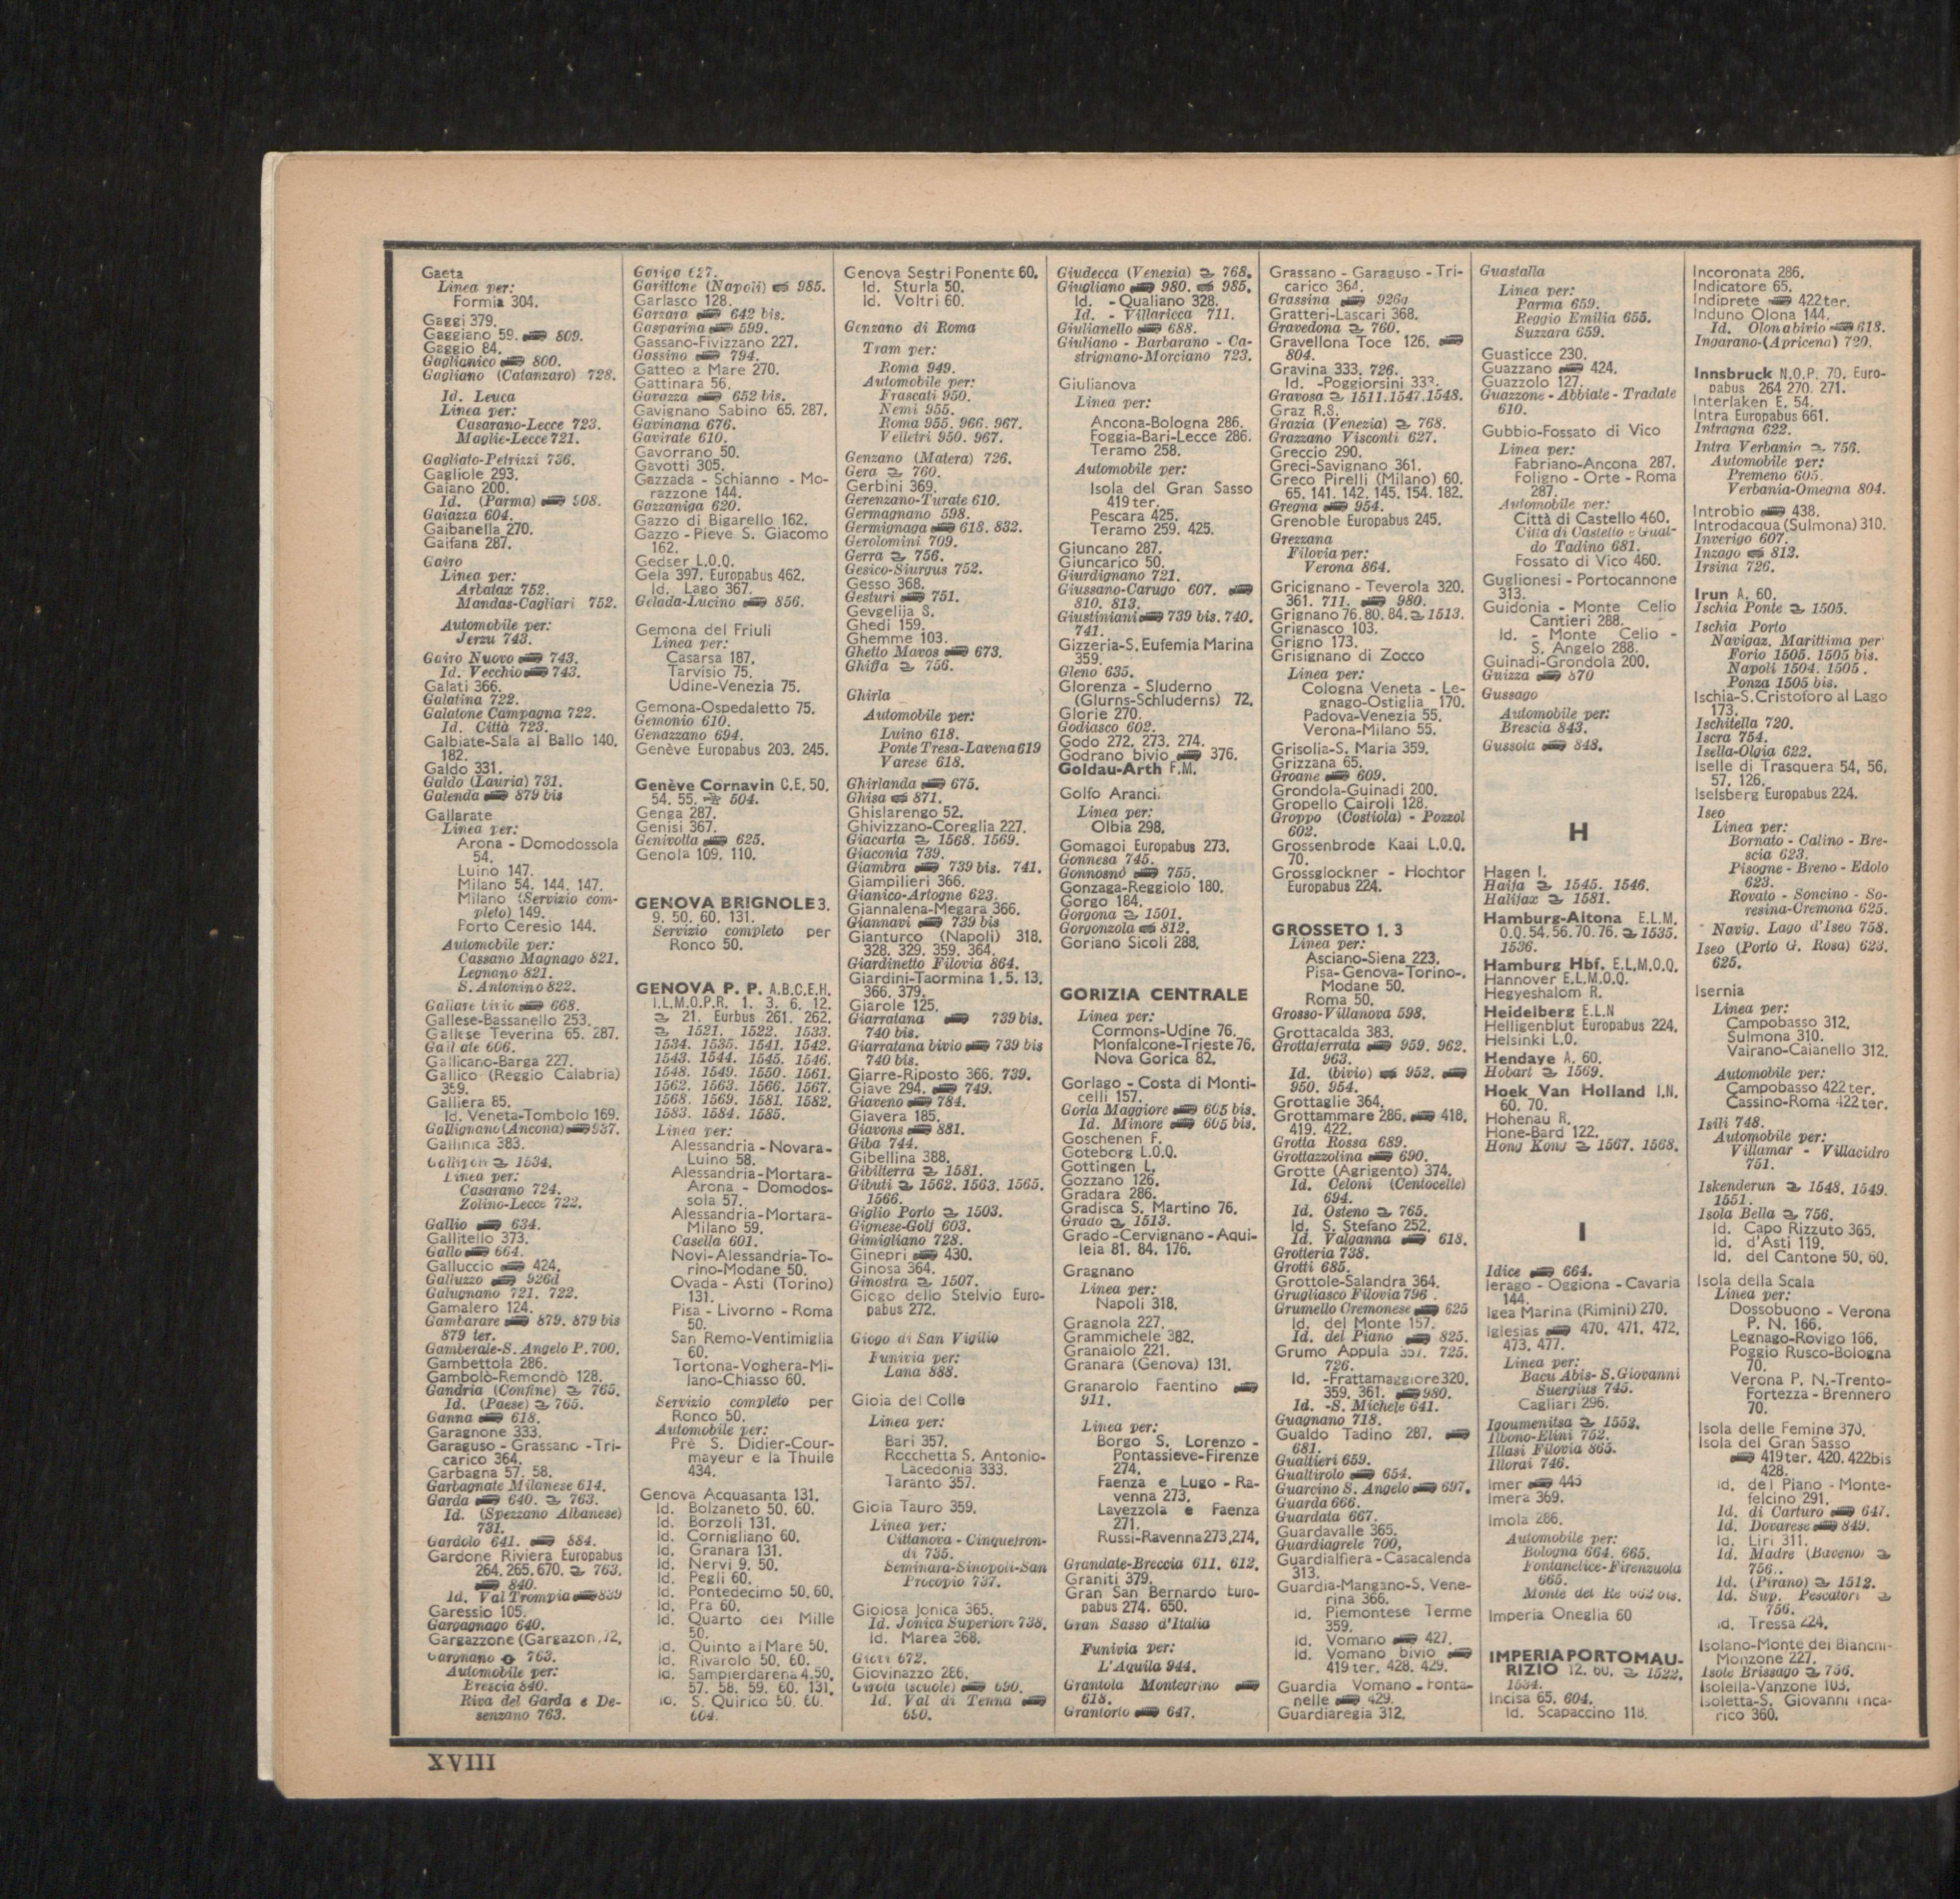 Gaeta
Linea per:
Formia 304.
Gaggi 379.
Gaggiano 59. 809.
Gaggio 84.
Gaglianico 800.
Gagliano (Catanzaro) 728.
Id. Leuca
Linea per:
Casarano-Lecce 723.
Maglie-Lecce 721.
Gagliato-Petrizzi 736.
Gagliole 293.
Gaiano 200.
Id. (Parma) 908.
Gaiazza 604.
Gaibanella 270.
Gaifana 287.
Gairo
Linea per:
Arbatax 752.
Mandas-Cagliari 752.
Automobile per:
Jerzu 743.
Gairo Nuovo 743.
Id. Vecchio 743.
Galati 366.
Galatina 722.
Galatone Campagna 722.
Id. Città 723.
Galbiate-Sala al Ballo 140.
182.
Galdo 331.
Galdo (Lauria) 731.
Galenda 879 bis
Gallarate
Linea per:
Arona - Domodossola
54.
Luino 147.
Milano 54. 144. 147.
Milano (Servizio com-
pleto) 149.
Porto Ceresio 144.
Automobile per:
Cassano Magnago 821.
Legnano 821.
S. Antonino 822.
Gallare bivio 668.
Gallese-Bassanello 253.
Gallese Teverina 65. 287.
Galliate 606.
Gallicano-Barga 227.
Gallico (Reggio Calabria)
359.
Galliera 85.
Id. Veneta-Tombolo 169.
Gallignano (Ancona) 937.
Gallinica 383.
Gallipoli 1534.
Linea per:
Casarano 724.
Zolino-Lecce 722.
Gallio 634.
Gallitello 373.
Gallo 664.
Galluccio 424.
Galluzzo 926d
Galugnano 721. 722.
Gamalero 124.
Gambarare 879. 879 bis
879 ter.
Gamberale-S. Angelo P. 700.
Gambettola 286.
Gambolò-Remondò 128.
Gandria (Confine) 765.
Id. (Paese) 765.
Ganna 618.
Garagnone 333.
Garaguso - Grassano - Tri-
carico 364.
Garbagna 57. 58.
Garbagnate Milanese 614.
Garda 640. 763.
Id. (Spezzano Albanese)
731.
Gardolo 641. 884.
Gardone Riviera Europabus
264. 265. 670. 763.
840.
Id. Val Trompia 839
Garessio 105.
Gargagnago 640.
Gargazzone (Gargazon) 72.
Gargnano 763.
Automobile per:
Brescia 840.
Riva del Garda e De-
senzano 763.
Gariga 627.
Garittone (Napoli) 985.
Garlasco 128.
Garzara 642 bis.
Gasparina 599.
Gassano-Fivizzano 227.
Gassino 794.
Gatteo a Mare 270.
Gattinara 56.
Gavazza 652 bis.
Gavignano Sabino 65. 287.
Gavinana 676.
Gavirate 610.
Gavorrano 50.
Gavotti 305.
Gazzada - Schianno - Mo-
razzone 144.
Gazzaniga 620.
Gazzo di Bigarello 162.
Gazzo - Pieve S. Giacomo
162.
Gedser L.O.Q.
Gela 397. Europabus 462.
Id. Lago 367.
Gelada-Lucino 856.
Gemona del Friuli
Linea per:
Casarsa 187.
Tarvisio 75.
Udine-Venezia 75.
Gemona-Ospedaletto 75.
Gemonio 610.
Genazzano 694.
Genève Europabus 203. 245.
Genève Cornavin C.E. 50.
54. 55. 504.
Genga 287.
Genisi 367.
Genivolta 625.
Genola 109. 110.
GENOVA BRIGNOLE 3.
9. 50. 60. 131.
Servizio completo per
Ronco 50.
GENOVA P. P. A.B.C.E.H.
I.L.M.O.P.R. 1. 3. 6. 12.
21. Eurbus 261. 262.
1521. 1522. 1533.
1534. 1535. 1541. 1542.
1543. 1544. 1545. 1546.
1548. 1549. 1550. 1561.
1562. 1563. 1566. 1567.
1568. 1569. 1581. 1582.
1583. 1584. 1585.
Linea per:
Alessandria - Novara-
Luino 58.
Alessandria-Mortara-
Arona - Domodos-
sola 57.
Alessandria-Mortara-
Milano 59.
Casella 601.
Novi-Alessandria-To-
rino-Modane 50.
Ovada - Asti (Torino)
131.
Pisa - Livorno - Roma
50.
San Remo-Ventimiglia
60.
Tortona-Voghera-Mi-
lano-Chiasso 60.
Servizio completo per
Ronco 50.
Automobile per:
Prè S. Didier-Cour-
mayeur e la Thuile
434.
Genova Acquasanta 131.
Id. Bolzaneto 50. 60.
Id. Borzoli 131.
Id. Cornigliano 60.
Id. Granara 131.
Id. Nervi 9. 50.
Id. Pegli 60.
Id. Pontedecimo 50. 60.
Id. Pra 60.
Id. Quarto dei Mille
50.
Id. Quinto al Mare 50.
Id. Rivarolo 50. 60.
Id. Sampierdarena 4. 50.
57. 58. 59. 60. 131.
Id. S. Quirico 50. 60.
604.
Genova Sestri Ponente 60.
Id. Sturla 50.
Id. Voltri 60.
Genzano di Roma
Tram per:
Roma 949.
Automobile per:
Frascati 950.
Nemi 955.
Roma 955. 966. 967.
Velletri 950. 967.
Genzano (Matera) 726.
Gera 760.
Gerbini 369.
Gerenzano-Turate 610.
Germagnano 598.
Germignaga 618. 832.
Gerolomini 709.
Gerra 756.
Gesico-Siurgus 752.
Gesso 368.
Gesturi 751.
Gevgelija S.
Ghedi 159.
Ghemme 103.
Ghetto Mavos 673.
Ghiffa 756.
Ghirla
Automobile per:
Luino 618.
Ponte Tresa-Lavena 619
Varese 618.
Ghirlanda 675.
Ghisa 871.
Ghislarengo 52.
Ghivizzano-Coreglia 227.
Giacarta 1568. 1569.
Giaconia 739.
Giambra 739 bis. 741.
Giampilieri 366.
Gianico-Artogne 623.
Giannalena-Megara 366.
Giannavi 739 bis
Gianturco (Napoli) 318.
328. 329. 359. 364.
Giardinetto Filovia 864.
Giardini-Taormina 1. 5. 13.
366. 379.
Giarole 125.
Giarratana 739 bis.
740 bis.
Giarratana bivio 739 bis
740 bis.
Giarre-Riposto 366. 739.
Giave 294. 749.
Giaveno 784.
Giavera 185.
Giavons 881.
Giba 744.
Gibellina 388.
Gibilterra 1581.
Gibuti 1562. 1563. 1565.
1566.
Giglio Porto 1503.
Gignese-Golf 603.
Gimigliano 728.
Ginepri 430.
Ginosa 364.
Ginostra 1507.
Giogo dello Stelvio Euro-
pabus 272.
Giogo di San Vigilio
Funivia per:
Lana 888.
Gioia del Colle
Linea per:
Bari 357.
Rocchetta S. Antonio-
Lacedonia 333.
Taranto 357.
Gioia Tauro 359.
Linea per:
Cittanova - Cinquefron-
di 735.
Seminara-Sinopoli-San
Procopio 737.
Gioiosa Jonica 365.
Id. Jonica Superiore 738.
Id. Marea 368.
Giovi 672.
Giovinazzo 286.
Girola (scuole) 690.
Id. Val di Tenna
690.
Giudecca (Venezia) 768.
Giugliano 980. 985.
Id. - Qualiano 328.
Id. - Villaricca 711.
Giulianello 688.
Giuliano - Barbarano - Ca-
strignano-Morciano 723.
Giulianova
Linea per:
Ancona-Bologna 286.
Foggia-Bari-Lecce 286.
Teramo 258.
Automobile per:
Isola del Gran Sasso
419 ter.
Pescara 425.
Teramo 259. 425.
Giuncano 287.
Giuncarico 50.
Giurdignano 721.
Giussano-Carugo 607.
810. 813.
Giustiniani 739 bis. 740.
741.
Gizzeria-S. Eufemia Marina
359.
Gleno 635.
Glorenza - Sluderno
(Glurns-Schluderns) 72.
Glorie 270.
Godiasco 602.
Godo 272. 273. 274.
Godrano bivio 376.
Goldau-Arth F.M.
Golfo Aranci.
Linea per:
Olbia 298.
Gomagoi Europabus 273.
Gonnesa 745.
Gonnosnò 755.
Gonzaga-Reggiolo 180.
Gorgo 184.
Gorgona 1501.
Gorgonzola 812.
Goriano Sicoli 288.
GORIZIA CENTRALE
Linea per:
Cormons-Udine 76.
Monfalcone-Trieste 76.
Nova Gorica 82.
Gorlago - Costa di Monti-
celli 157.
Gorla Maggiore 605 bis.
Id. Minore 605 bis.
Goschenen F.
Goteborg L.O.Q.
Gottingen L.
Gozzano 126.
Gradara 286.
Gradisca S. Martino 76.
Grado 1513.
Grado - Cervignano - Aqui-
leia 81. 84. 176.
Gragnano
Linea per:
Napoli 318.
Gragnola 227.
Grammichele 382.
Granaiolo 221.
Granara (Genova) 131.
Granarolo Faentino
911.
Linea per:
Borgo S. Lorenzo -
Pontassieve-Firenze
274.
Faenza e Lugo - Ra-
venna 273.
Lavezzola e Faenza
271.
Russi-Ravenna 273, 274.
Grandate-Breccia 611. 612.
Graniti 379.
Gran San Bernardo Euro-
pabus 274. 650.
Gran Sasso d'Italia
Funivia per:
L'Aquila 944.
Grantola Montegrino
618.
Grantorto 647.
Grassano - Garaguso - Tri-
carico 364.
Grassina 926a
Gratteri-Lascari 368.
Gravedona 760.
Gravellona Toce 126.
804.
Gravina 333. 726.
Id. -Poggiorsini 333.
Gravosa 1511. 1547. 1548.
Graz R.S.
Grazia (Venezia) 768.
Grazzano Visconti 627.
Greccio 290.
Greci-Savignano 361.
Greco Pirelli (Milano) 60.
65. 141. 142. 145. 154. 182.
Gregna 954.
Grenoble Europabus 245.
Grezzana
Filovia per:
Verona 864.
Gricignano - Teverola 320.
361. 711. 980.
Grignano 76. 80. 84. 1513.
Grignasco 103.
Grigno 173.
Grisignano di Zocco
Linea per:
Cologna Veneta - Le-
gnago-Ostiglia 170.
Padova-Venezia 55.
Verona-Milano 55.
Grisolia-S. Maria 359.
Grizzana 65.
Groane 609.
Grondola-Guinadi 200.
Gropello Cairoli 128.
Groppo (Costiola) - Pozzol
602.
Grossenbrode Kaai L.O.Q.
70.
Grossglockner - Hochtor
Europabus 224.
GROSSETO 1. 3
Linea per:
Asciano-Siena 223.
Pisa-Genova-Torino-
Modane 50.
Roma 50.
Grosso-Villanova 598.
Grottacalda 383.
Grottaferrata 959. 962.
963.
Id. (bivio) 952.
950. 954.
Grottaglie 364.
Grottammare 286. 418.
419. 422.
Grotta Rossa 689.
Grottazzolina 690.
Grotte (Agrigento) 374.
Id. Celoni (Centocelle)
694.
Id. Osteno 765.
Id. S. Stefano 252.
Id. Valganna 618.
Grotteria 738.
Grotti 685.
Grottole-Salandra 364.
Grugliasco Filovia 796.
Grumello Cremonese 625
Id. del Monte 157.
Id. del Piano 825.
Grumo Appula 357. 725.
726.
Id. -Frattamaggiore 320.
359. 361. 980.
Id. -S. Michele 641.
Guagnano 718.
Gualdo Tadino 287.
681.
Gualtieri 659.
Gualtirolo 654.
Guarcino S. Angelo 697.
Guarda 666.
Guardata 667.
Guardavalle 365.
Guardiagrele 700.
Guardialfiera - Casacalenda
313.
Guardia-Mangano-S. Vene-
rina 366.
Id. Piemontese Terme
359.
Id. Vomano 427.
Id. Vomano bivio
419 ter. 428. 429.
Guardia Vomano - Fonta-
nelle 429.
Guardiaregia 312.
Guastalla
Linea per:
Parma 659.
Reggio Emilia 655.
Suzzara 659.
Guasticce 230.
Guazzano 424.
Guazzolo 127.
Guazzone - Abbiate - Tradate
610.
Gubbio-Fossato di Vico
Linea per:
Fabriano-Ancona 287.
Foligno - Orte - Roma
287.
Automobile per:
Città di Castello 460.
Città di Castello e Gual-
do Tadino 681.
Fossato di Vico 460.
Guglionesi - Portocannone
313.
Guidonia - Monte Celio
Cantieri 288.
Id. - Monte Celio -
S. Angelo 288.
Guinadi-Grondola 200.
Guizza 870
Gussago
Automobile per:
Brescia 843.
Gussola 848.
H
Hagen I.
Haifa 1545. 1546.
Halifax 1581.
Hamburg-Altona E.L.M.
O.Q. 54. 56. 70. 76. 1535.
1536.
Hamburg Hbf. E.L.M.O.Q.
Hannover E.L.M.O.Q.
Hegyeshalom R.
Heidelberg E.L.N
Helligenblut Europabus 224.
Helsinki L.O.
Hendaye A. 60.
Hobart 1569.
Hoek Van Holland I.N.
60. 70.
Hohenau R.
Hone-Bard 122.
Hong Kong 1567. 1568.
I
Idice 664.
Ierago - Oggiona - Cavaria
144.
Igea Marina (Rimini) 270.
Iglesias 470. 471. 472.
473. 477.
Linea per:
Bacu Abis-S. Giovanni
Suergius 745.
Cagliari 296.
Igoumenitsa 1552.
Ilbono-Elini 752.
Illasi Filovia 865.
Illorai 746.
Imer 445
Imera 369.
Imola 286.
Automobile per:
Bologna 664. 665.
Fontanelice-Firenzuola
665.
Monte del Re 662 bis.
Imperia Oneglia 60
IMPERIA PORTOMAU-
RIZIO 12. 60. 1522.
1534.
Incisa 65. 604.
Id. Scapaccino 118.
Incoronata 286.
Indicatore 65.
Indiprete 422 ter.
Induno Olona 144.
Id. Olona bivio 618.
Ingarano-(Apricena) 720.
Innsbruck N.O.P. 70. Euro-
pabus 264 270. 271.
Interlaken E. 54.
Intra Europabus 661.
Intragna 622.
Intra Verbania 756.
Automobile per:
Premeno 605.
Verbania-Omegna 804.
Introbio 438.
Introdacqua (Sulmona) 310.
Inverigo 607.
Inzago 813.
Irsina 726.
Irun A. 60.
Ischia Ponte 1505.
Ischia Porto
Navigaz. Marittima per
Forio 1505. 1505 bis.
Napoli 1504. 1505.
Ponza 1505 bis.
Ischia-S. Cristoforo al Lago
173.
Ischitella 720.
Iscra 754.
Isella-Olgia 622.
Iselle di Trasquera 54. 56.
57. 126.
Iselsberg Europabus 224.
Iseo
Linea per:
Bornato - Calino - Bre-
scia 623.
Pisogne - Breno - Edolo
623.
Rovato - Soncino - So-
resina-Cremona 625.
Navig. Lago d'Iseo 758.
Iseo (Porto G. Rosa) 623.
625.
Isernia
Linea per:
Campobasso 312.
Sulmona 310.
Vairano-Caianello 312.
Automobile per:
Campobasso 422 ter.
Cassino-Roma 422 ter.
Isili 748.
Automobile per:
Villamar - Villacidro
751.
Iskenderun 1548. 1549.
1551.
Isola Bella 756.
Id. Capo Rizzuto 365.
Id. d'Asti 119.
Id. del Cantone 50. 60.
Isola della Scala
Linea per:
Dossobuono - Verona
P. N. 166.
Legnago-Rovigo 166.
Poggio Rusco-Bologna
70.
Verona P. N.-Trento-
Fortezza - Brennero
70.
Isola delle Femine 370.
Isola del Gran Sasso
419 ter. 420. 422bis
428.
Id. del Piano - Monte-
felcino 291.
Id. di Carturo 647.
Id. Dovarese 849.
Id. Liri 311.
Id. Madre (Baveno)
756.
Id. (Pirano) 1512.
Id. Sup. Pescatori
756.
Id. Tressa 224.
Isolano-Monte dei Bianchi-
Monzone 227.
Isole Brissago 756.
Isolella-Vanzone 103.
Isoletta-S. Giovanni Inca-
rico 360.
XVIII